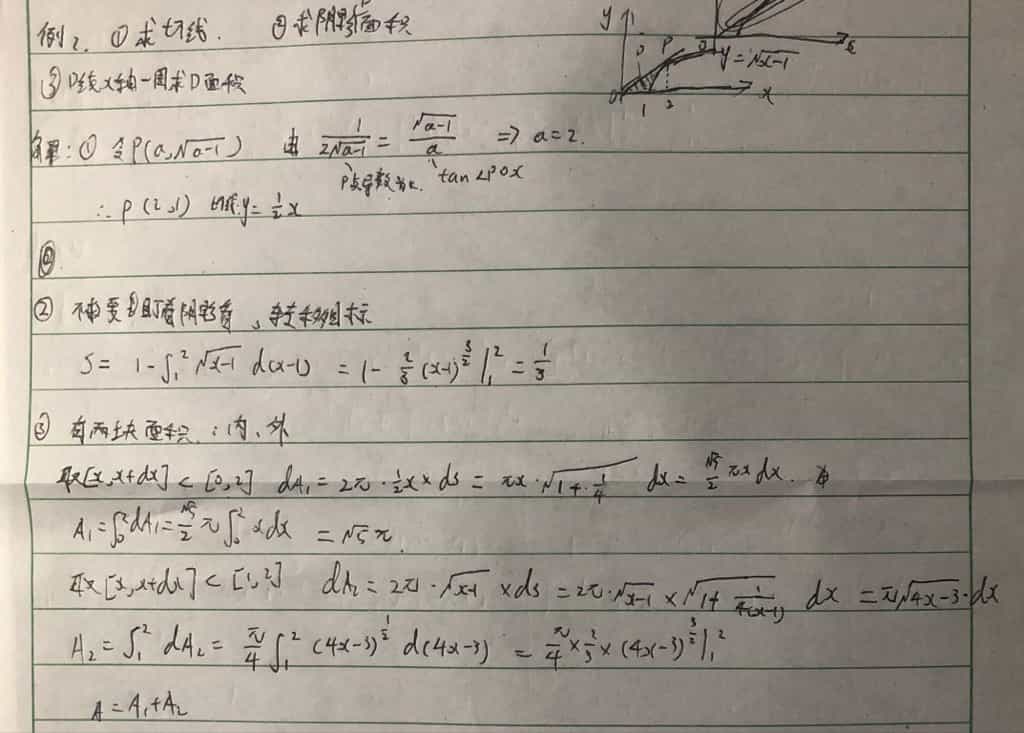 例2. ①求切线. ②求阴影面积
③D绕x轴一周求D面积
y D P y=√x-1
0 1 2 x
解:① 令P(a,√a-1) 由 1/2√a-1 = √a-1/a => a=2.
P点导数为k. tan∠POx
∴ P(2,1) 切线y=1/2x
②
② 不要盯着阴影看,
S= 1-∫₁² √x-1 d(x-1) = 1- 2/3 (x-1)^3/2 |₁² = 1/3
③ 有两块面积:内、外
取[x,x+dx]⊂[0,2] dA₁=2π·1/2x×ds=πx·√1+1/4 dx=√5/2 πxdx.
A₁=∫₀²dA₁=√5/2 π∫₀² xdx =√5π.
取[x,x+dx]⊂[1,2] dA₂=2π·√x-1 ×ds=2π·√x-1×√1+1/4(x-1) dx =π√4x-3·dx
A₂=∫₁² dA₂= π/4 ∫₁² (4x-3)^1/2 d(4x-3) = π/4×2/3×(4x-3)^3/2|₁²
A=A₁+A₂